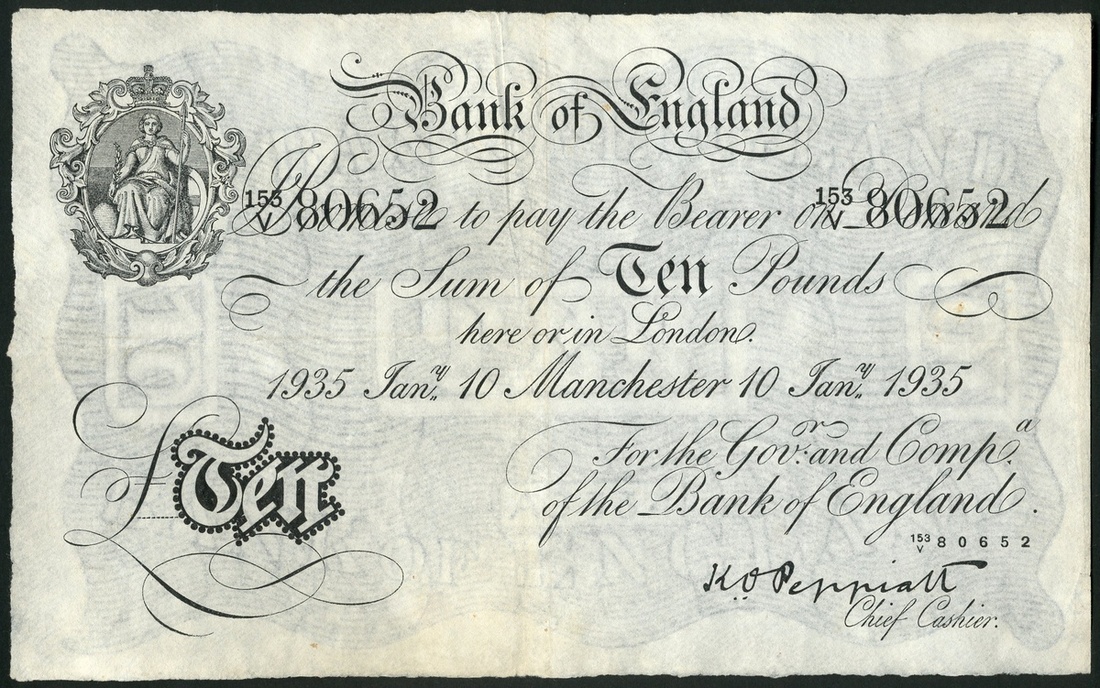 Bank of England
153/V 80652 153/V 80652
I Promise to pay the Bearer on Demand
the Sum of Ten Pounds
here or in London.
1935 Jan.y 10 Manchester 10 Jan.y 1935
For the Gov.r and Comp.a
of the Bank of England.
£Ten
153/V 80652
K.O. Peppiatt
Chief Cashier.